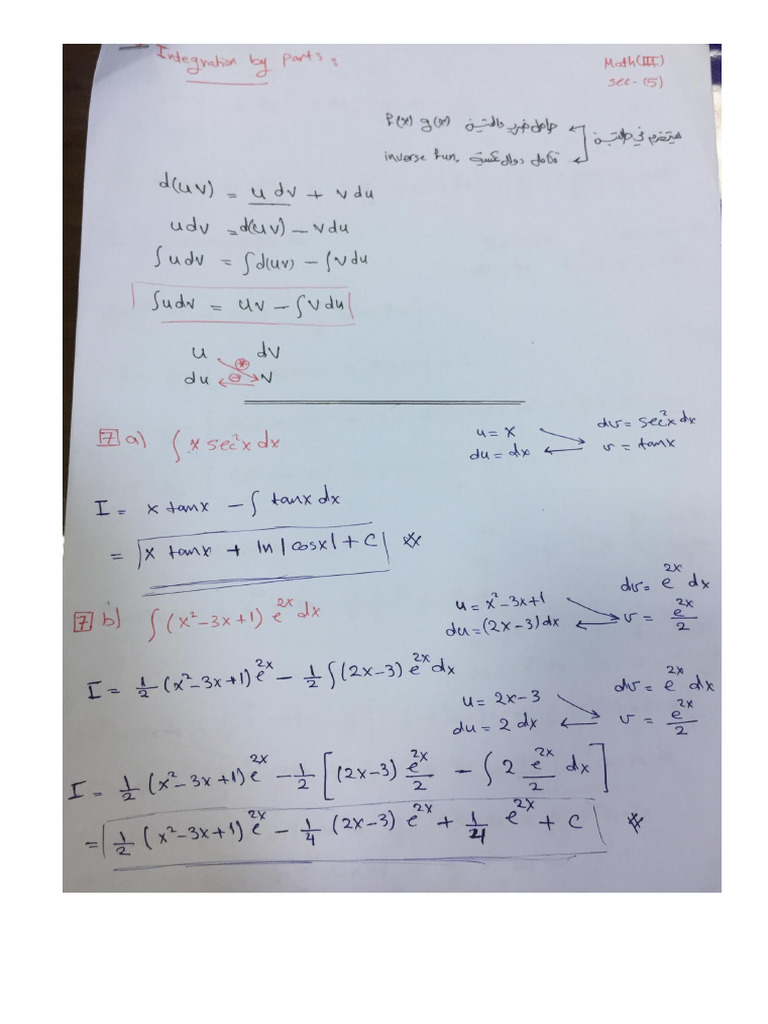 Integration by parts:
Math(III)
sec-(5)
f(x) g(x) حاصل ضرب دالتين
inverse fun. تكامل دوال عكسية
d(uv) = u dv + v du
u dv = d(uv) - v du
∫u dv = ∫d(uv) - ∫v du
∫u dv = uv - ∫v du
u dv
du v
7 a) ∫ x sec²x dx
u = x dv = sec²x dx
du = dx v = tanx
I = x tanx - ∫ tanx dx
= x tanx + ln|cosx| + c
7 b) ∫(x²-3x+1) e^2x dx
u = x²-3x+1 dv = e^2x dx
du = (2x-3)dx v = e^2x/2
I = 1/2 (x²-3x+1) e^2x - 1/2 ∫(2x-3) e^2x dx
u = 2x-3 dv = e^2x dx
du = 2 dx v = e^2x/2
I = 1/2 (x²-3x+1) e^2x - 1/2 [(2x-3) e^2x/2 - ∫ 2 e^2x/2 dx]
= 1/2 (x²-3x+1) e^2x - 1/4 (2x-3) e^2x + 1/4 e^2x + c